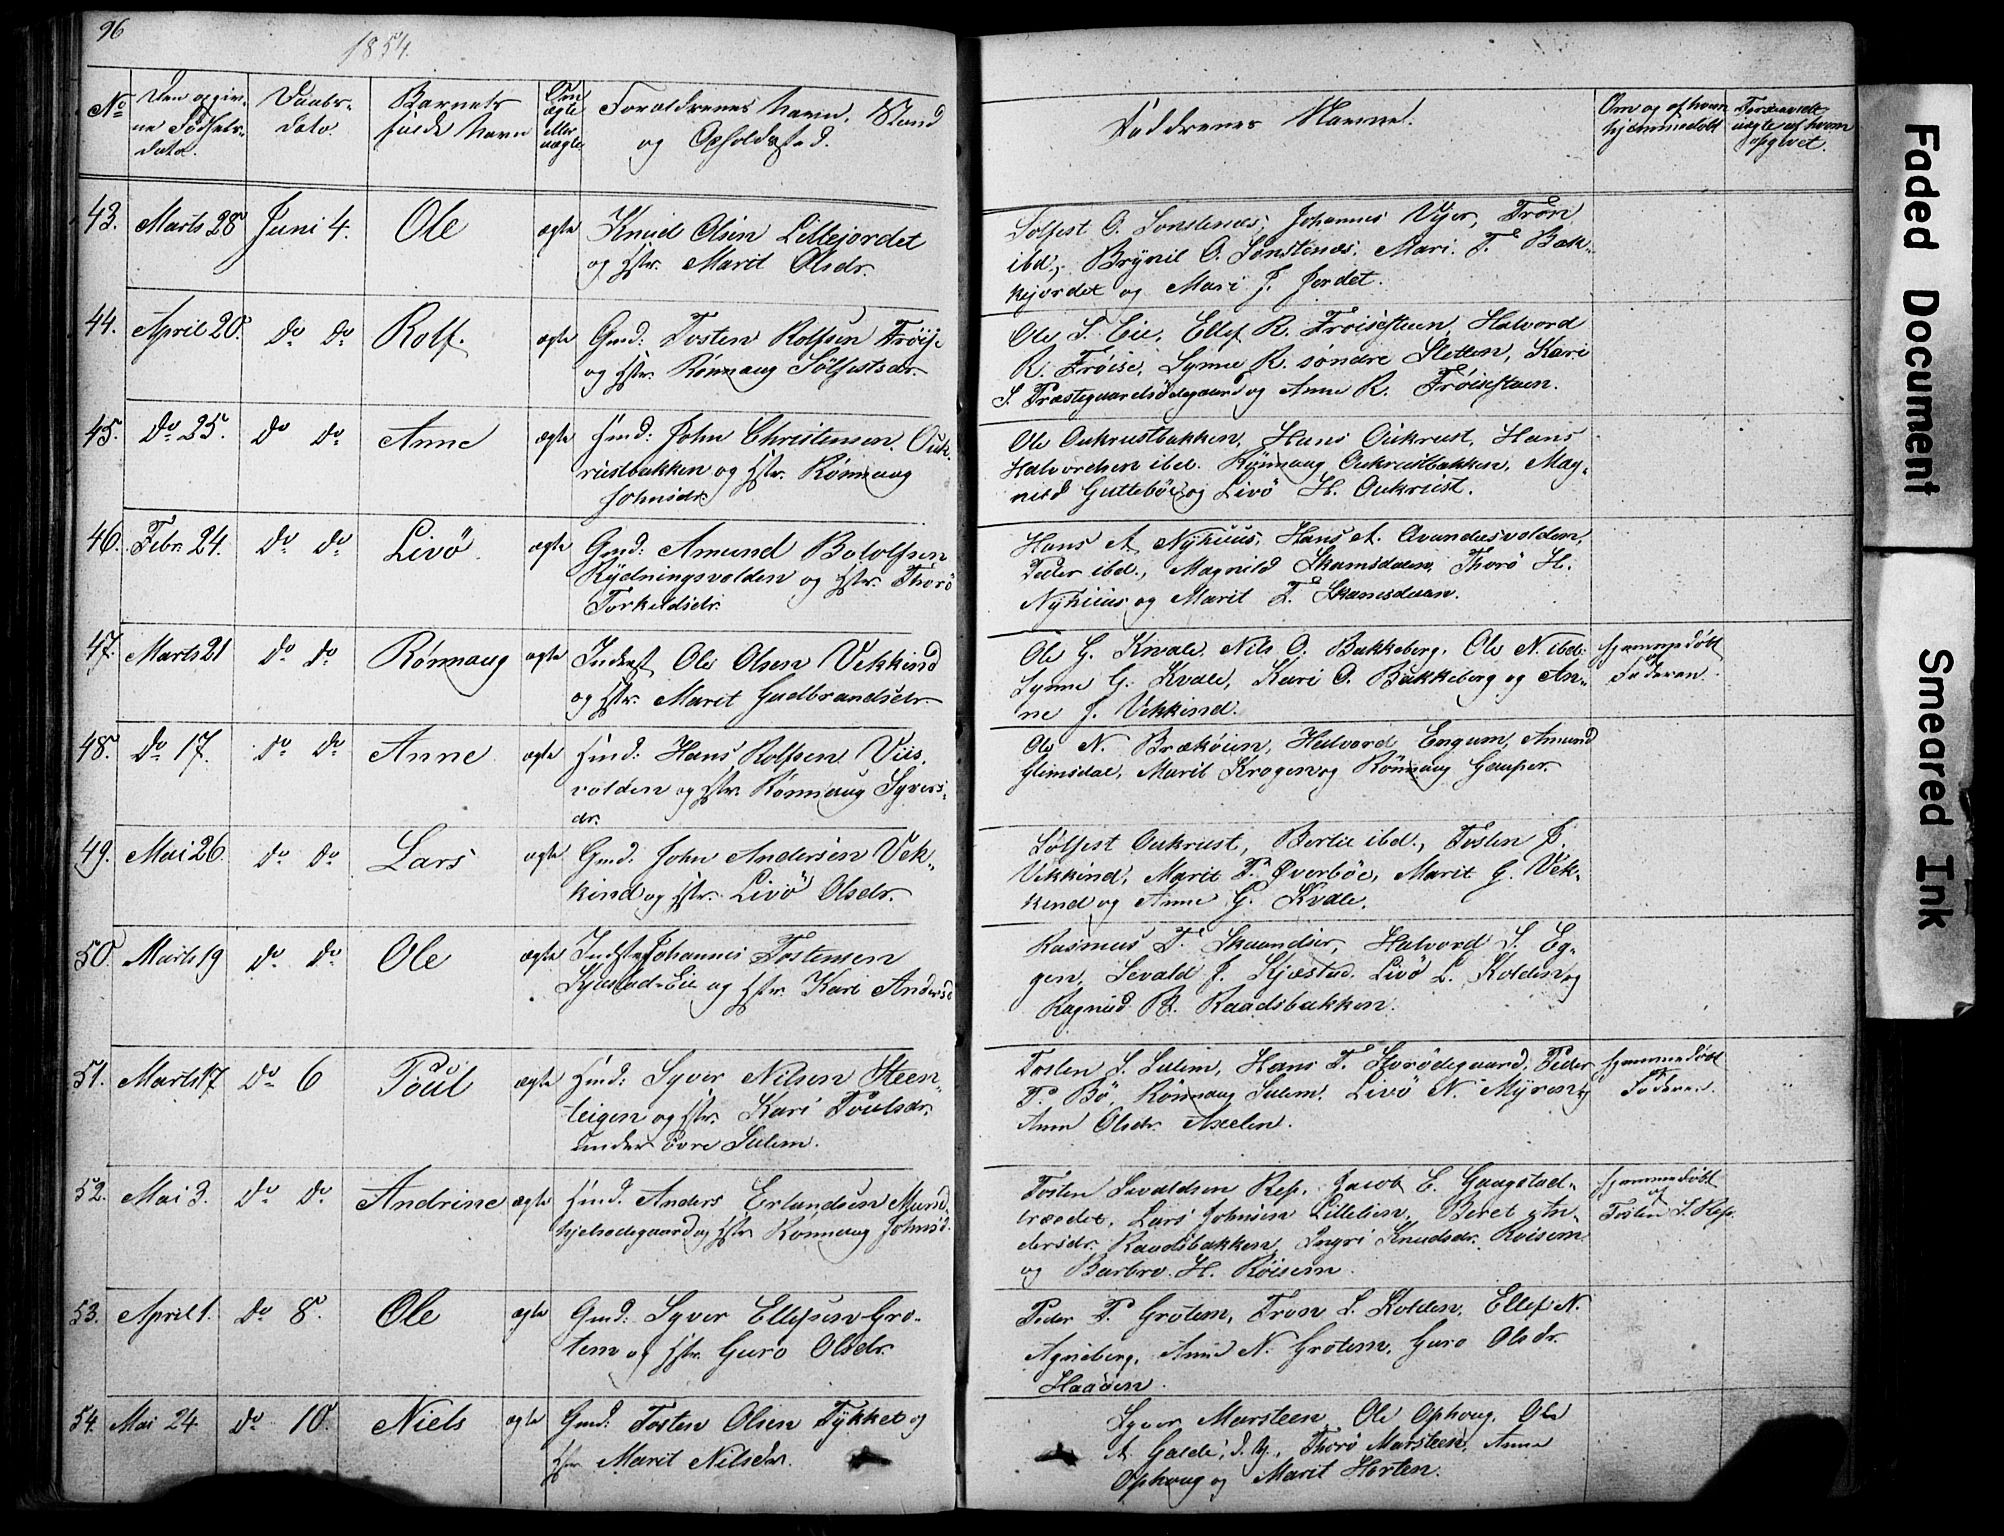 96
1854.
No
Den opgiv-
ne Fødsels-
dato.
Daabs-
dato.
Barnets
fulde Navn
Om
ægte
eller
uægte
Forældrenes Navn, Stand
og Opholdssted.
Faddrenes Navne.
Om og af hvem
hjemmedøbt
Forsaavidt
uægte af hvem
opgivet.
43. Marts 28 Juni 4. Ole ægte Knud Olsen Lillejordet
og Hstr. Marit Olsdr.
Sølfest O. Sønstenæs, Johannes Trøn
ibd, Brynil O. Sønstenæs, Mari T. Bak-
kejordet og Mari J. Jordet.
44. April 20. do do Rolf. ægte Gmd: Tosten Rolfsen Frøise
og Hstr. Rønnaug Sølfestsdr.
Ole S. Eie, Ellef R. Frøisestuen, Halvord
R. Frøise, Synne R. søndre Sletten, Kari
S. Præstegaardsødegaard og Anne R. Frøisestuen.
45. do 25. do do Anne ægte Hmd: John Christensen Ouk-
rustbakken og Hstr. Rønnaug
Johnsdr.
Ole Oukrustbakken, Hans Oukrust, Hans
Halvordsen ibd. Rønnaug Oukrustbakken, Mag-
nild Guttebøe og Livö H. Oukrust.
46. Febr. 24. do do Livö ægte Gmd: Amund Botolfsen
Rydningsvolden og Hstr. Thorö
Torkeldsdr.
Hans A. Nyhuus, Hans A. Avundesvolden,
Peder ibd., Magnild Skamsdaen, Thorö H.
Nyhuus og Marit T. Skamsdaen.
47. Marts 21 do do Rønnaug ægte Inderst Ole Olsen Vekkind
og Hstr. Marit Gudbrandsdr.
Ole G. Kvale, Nils O. Bakkeberg, Ole N. ibd.
Synne G. Kvale, Kari O. Bakkeberg og An-
ne J. Vekkind.
hjemmedøbt
af
Faderen.
48. do 17. do do Anne ægte Hmd: Hans Rolfsen Viis-
volden og Hstr. Rønnaug Syvers-
dr.
Ole N. Brækøien, Halvord Engum, Amund
Glimsdal, Marit Krogen og Rønnaug Gamper.
49. Mai 26. do do Lars ægte Gmd. John Andersen Vek-
kind og Hstr. Livö Olsdr.
Sølfest Oukrust, Bertil ibd., Tosten J.
Vekkind, Marit P. Øverbøe, Marit G. Vek-
kind og Anne G. Kvale.
50. Marts 19 do do Ole ægte Indste Johannes Tostensen
Kjæstad-Eie og Hstr. Kari Andersd
Rasmus T. Skaandser, Halvord S. Eg-
gen, Sevald J. Kjæstad, Livö L. Kolden og
Ragnild R. Raadsbakken.
51. Marts 17 do 6 Poul ægte Hmd: Syver Nilsen Steen-
teigen og Hstr. Kari Poulsdr.
under övre Sulem.
Tosten S. Sulem, Hans T. Horödegaard, Peder
P. Bö, Rønnaug Sulem, Livö N. Myren og
Anne Olsdr. Axelen.
hjemmedøbt
af
Faderen.
52. Mai 3. do do Andrine ægte Hmd. Anders Erlandsen Mund-
hjelsödegaard og Hstr. Rønnaug Johnsd.
Tosten Sevaldsen Rep, Jacob E. Gaagstad-
træædet, Lars Johnsen Lillelien, Beret An-
dersdr. Raadsbakken, Ingri Knudsdr. Röisem
og Barbro H. Röisem.
hjemmedøbt
af
Tosten S. Rep.
53. April 1. do 8. Ole ægte Gmd: Syver Ellefsen Gro-
tem og Hstr. Guro Olsdr.
Peder P. Grotem, Tron L. Kolden, Ellef N.
Agneberg, Anne N. Grotem, Guro Olsdr.
Haaöen.
54. Mai 24. do 10. Niels ægte Gmd: Tosten Olsen Tykket og
Hstr Marit Nilsdr.
Syver Marsteen, Ole Ophoug, Ole
A. Galde, d. y., Thorö Marsteen, Anne
Ophoug og Marit Horten.
Faded Document
Smeared Ink